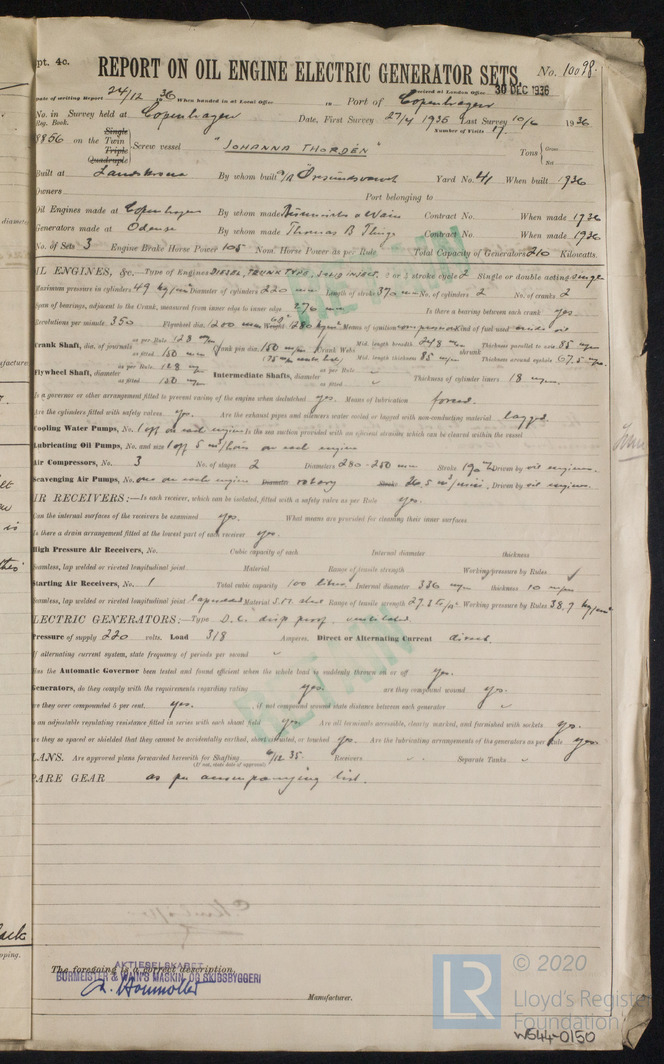 pt. 4c.
REPORT ON OIL ENGINE ELECTRIC GENERATOR SETS. No. 10098.
Date of writing Report 24/12 1936 When handed in at Local Office 19 Port of Copenhagen Received at London Office 30 DEC 1936
No. in Survey held at Copenhagen Date, First Survey 27/4 1936 Last Survey 10/6 1936
Reg. Book. Number of Visits 17.
8856 on the Single Twin Triple Quadruple Screw vessel "JOHANNA THORDÉN" Tons Gross Net
Built at Landskrona By whom built A/B Öresundsvarvet Yard No. 41 When built 1936
Owners Port belonging to
Oil Engines made at Copenhagen By whom made Burmeister & Wain Contract No. When made 1936
Generators made at Odense By whom made Thomas B Thrige Contract No. When made 1936.
No. of Sets 3 Engine Brake Horse Power 105 Nom. Horse Power as per Rule Total Capacity of Generators 210 Kilowatts.
IL ENGINES, &c.—Type of Engines DIESEL, TRUNK TYPE, SOLID INJECT. 2 or 4 stroke cycle 2 Single or double acting single
Maximum pressure in cylinders 49 kg/cm² Diameter of cylinders 220 mm Length of stroke 370 mm No. of cylinders 2 No. of cranks 2
Span of bearings, adjacent to the Crank, measured from inner edge to inner edge 276 mm Is there a bearing between each crank yes
Revolutions per minute 350 Flywheel dia. 1200 mm Means of ignition compression Kind of fuel used crude oil
Crank Shaft, dia. of journals as per Rule 128 mm as fitted 150 mm Crank pin dia. 150 mm Crank Webs Mid. length breadth 248 mm Mid. length thickness 85 mm shrunk Thickness parallel to axis 85 mm Thickness around eyehole 67.5 mm.
Flywheel Shaft, diameter as per Rule 128 mm as fitted 150 mm Intermediate Shafts, diameter as per Rule as fitted Thickness of cylinder liners 18 mm.
Is a governor or other arrangement fitted to prevent racing of the engine when declutched yes. Means of lubrication forced.
Are the cylinders fitted with safety valves yes. Are the exhaust pipes and silencers water cooled or lagged with non-conducting material lagged.
Cooling Water Pumps, No. 1 off on each engine Is the sea suction provided with an efficient strainer which can be cleared within the vessel
Lubricating Oil Pumps, No. and size 1 off 5 m³/hour on each engine
Air Compressors, No. 3 No. of stages 2 Diameters 280 - 250 mm Stroke 190 Driven by oil engines.
Scavenging Air Pumps, No. one on each engine Diameter rotary Stroke 20.5 m³/min. Driven by oil engines.
IR RECEIVERS:—Is each receiver, which can be isolated, fitted with a safety valve as per Rule yes.
Can the internal surfaces of the receivers be examined yes. What means are provided for cleaning their inner surfaces
Is there a drain arrangement fitted at the lowest part of each receiver yes.
High Pressure Air Receivers, No. Cubic capacity of each Internal diameter thickness
Seamless, lap welded or riveted longitudinal joint Material Range of tensile strength Working pressure by Rules
Starting Air Receivers, No. 1 Total cubic capacity 100 litres Internal diameter 336 mm thickness 10 mm
Seamless, lap welded or riveted longitudinal joint lapwelded Material S.M. steel Range of tensile strength Working pressure by Rules 38.7 kg/cm²
LECTRIC GENERATORS:—Type D.C. drip proof, ventilated
Pressure of supply 220 volts. Load 318 Amperes. Direct or Alternating Current direct.
If alternating current system, state frequency of periods per second
Has the Automatic Governor been tested and found efficient when the whole load is suddenly thrown on or off yes.
Generators, do they comply with the requirements regarding rating yes. are they compound wound yes.
are they over compounded 5 per cent. yes. , if not compound wound state distance between each generator
is an adjustable regulating resistance fitted in series with each shunt field yes. Are all terminals accessible, clearly marked, and furnished with sockets yes.
are they so spaced or shielded that they cannot be accidentally earthed, short circuited, or touched yes. Are the lubricating arrangements of the generators as per Rule yes
LANS. Are approved plans forwarded herewith for Shafting 6/12 35. Receivers Separate Tanks
(If not, state date of approval)
PARE GEAR as per accompanying list.
RETAIN
RETAIN
The foregoing is a correct description,
AKTIESELSKABET
BURMEISTER & WAIN'S MASKIN- OG SKIBSBYGGERI
Manufacturer.
LR © 2020
Lloyd's Register
Foundation
W644-0150